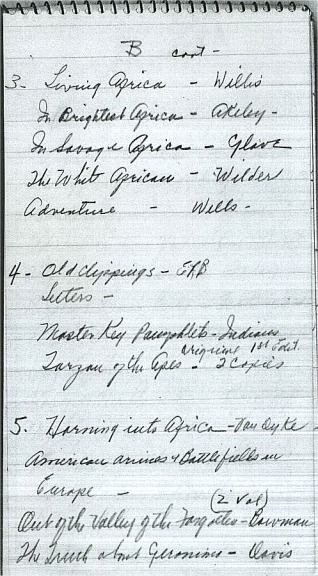 B cont -
3. Living Africa - Willis
In Brightest Africa - Akeley -
In Savage Africa - Glave
The White African - Wilder
Adventure - Wells -
4 - Old clippings - ERB
Letters -
Master Key Pamphlets - Indians
Tarzan of the Apes - original 1st Edit. 2 Copies
5. Horning into Africa - Van Dyke
American armies & Battlefields in
Europe -
(2 Vol)
Out of the Valley of the Forgotten - Bowman
The Truth about Geronimo - Davis